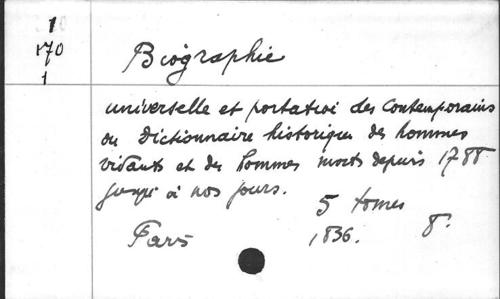 1
170
1
Biographie
universelle et portative des Contemporains
ou Dictionnaire historique des hommes
vivants et des hommes morts depuis 1788
jusqu'à nos jours.
5 tomes
Paris 1836. 8°.